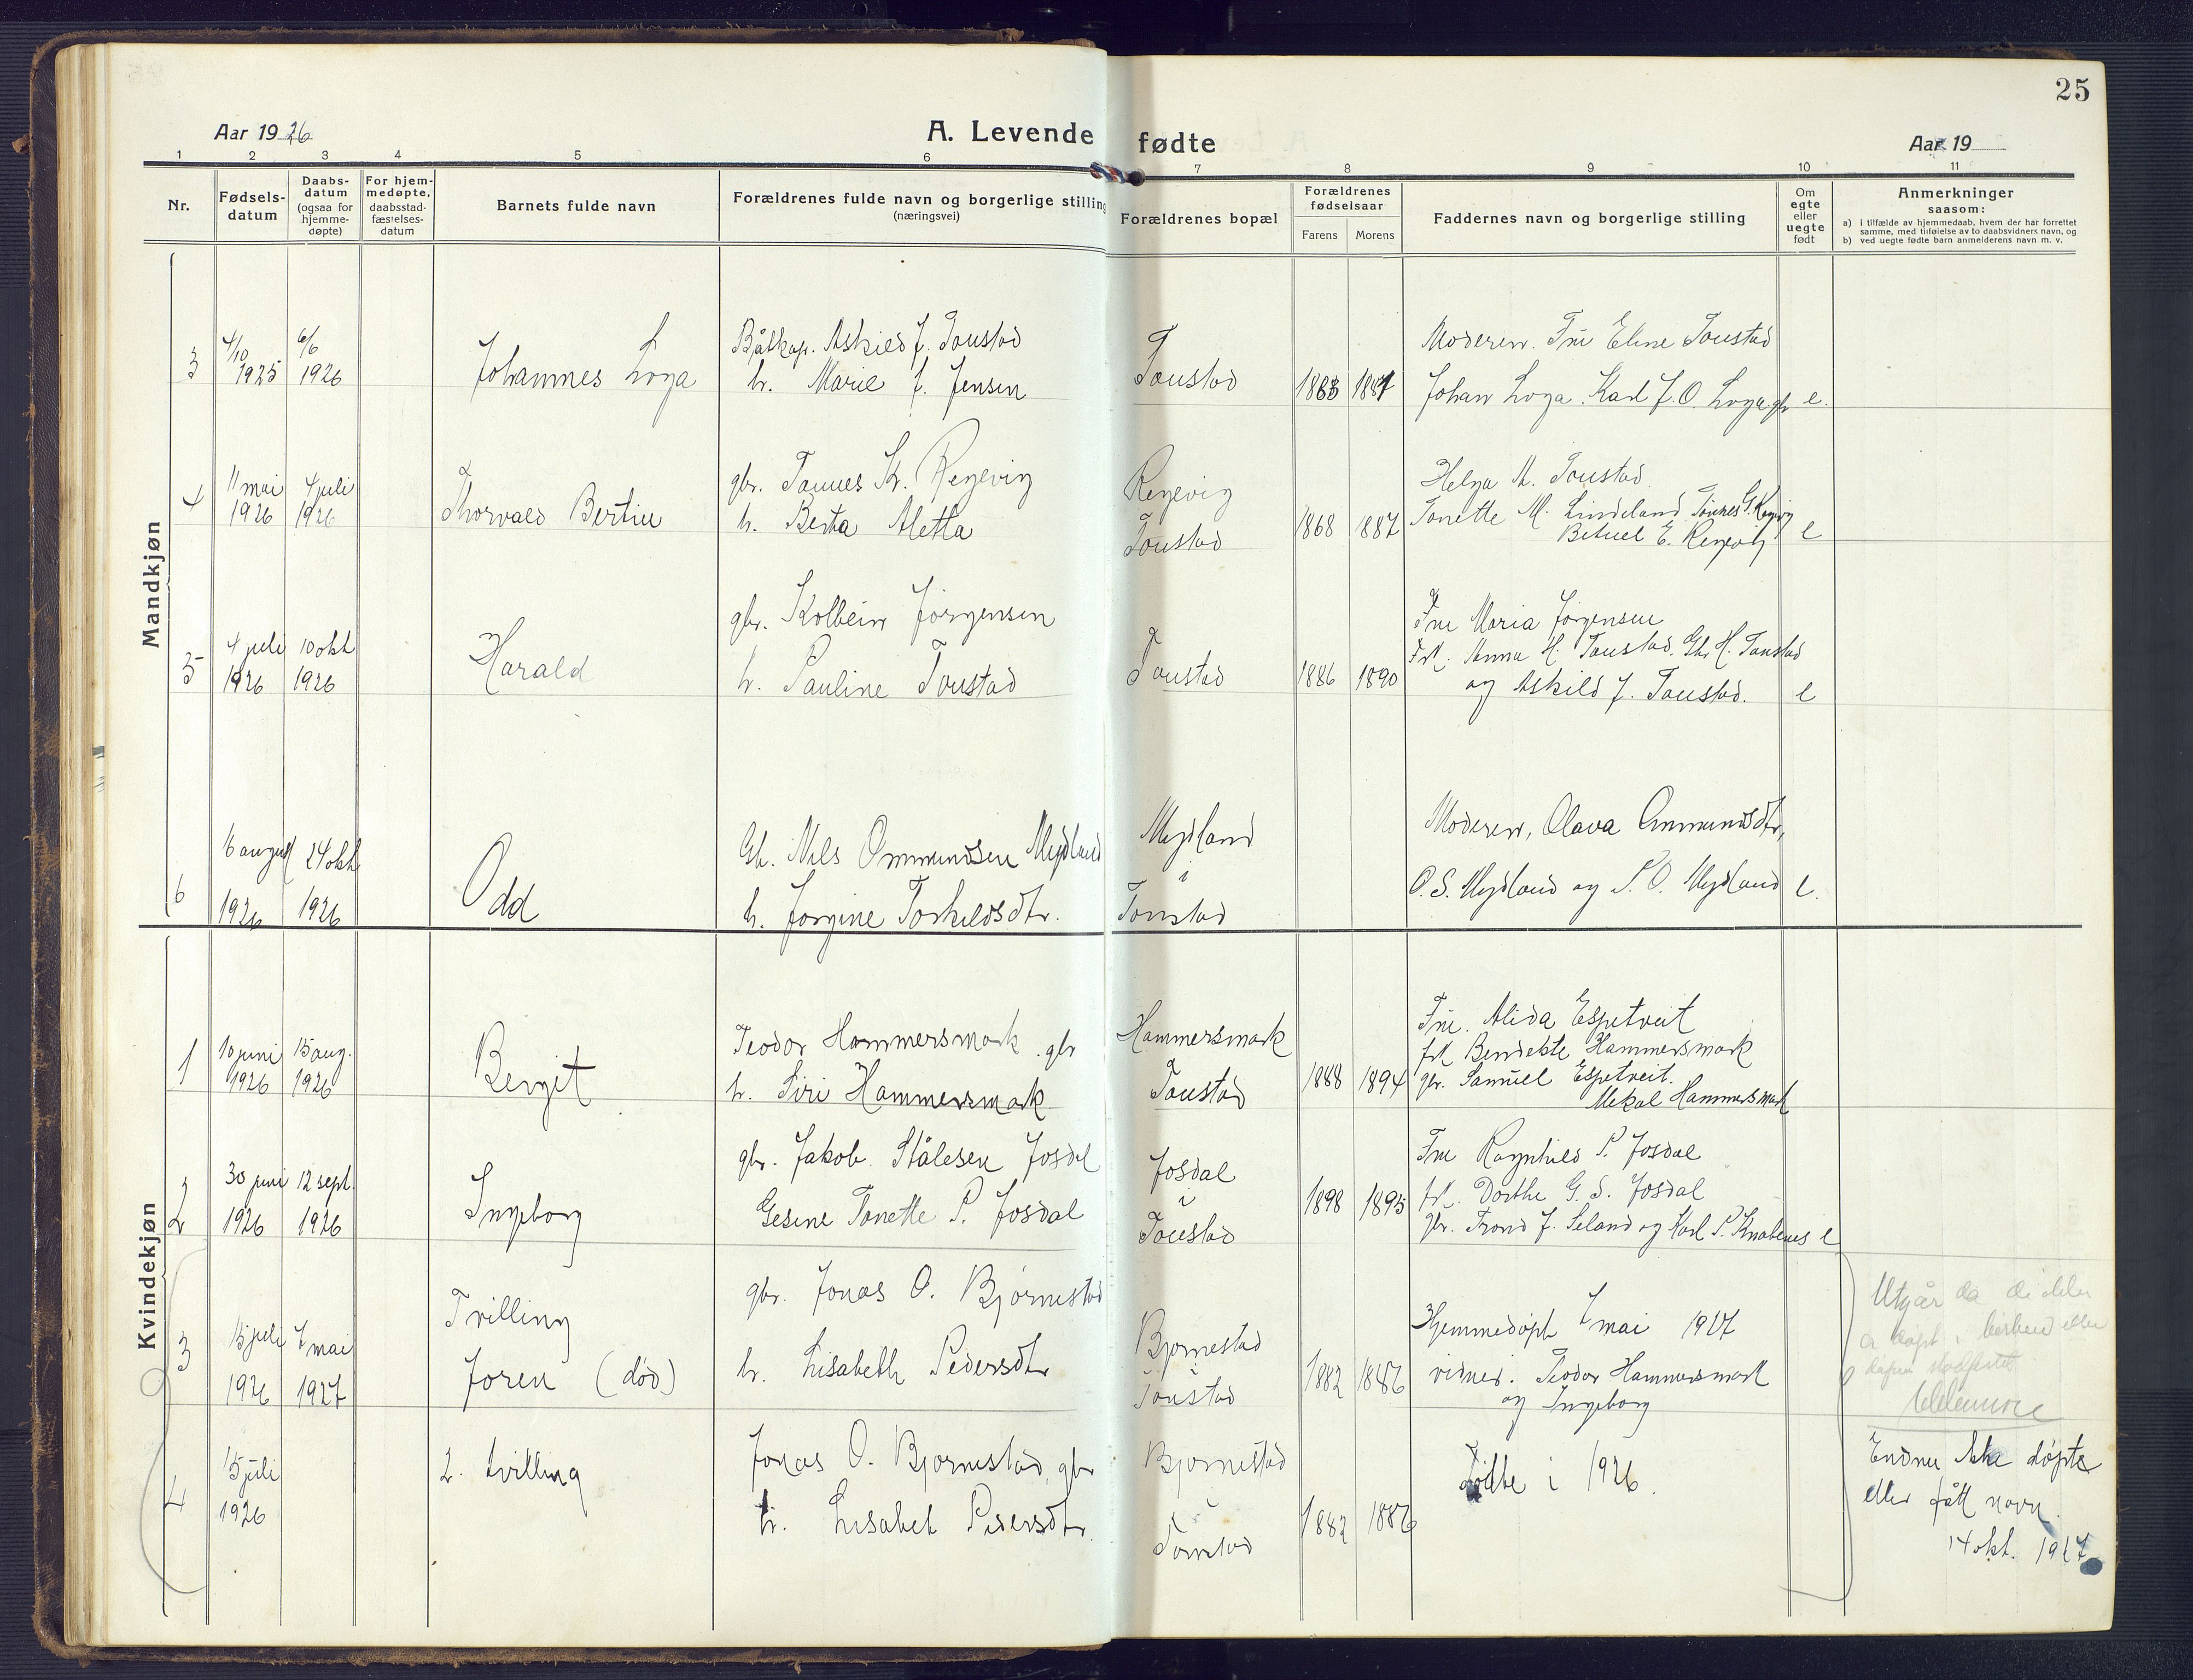 25
Aar 1926
A. Levende
fødte
Aar 19
1 2 3 4 5 6 7 8 9 10 11
Nr.
Fødsels-
datum
Daabs-
datum
(ogsaa for
hjemme-
døpte)
For hjem-
medøpte,
daabsstad-
fæstelses-
datum
Barnets fulde navn
Forældrenes fulde navn og borgerlige stilling
(næringsvei)
Forældrenes bopæl
Forældrenes
fødselsaar
Farens Morens
Faddernes navn og borgerlige stilling
Om
egte
eller
uegte
født
Anmerkninger
saasom:
a) i tilfælde av hjemmedaab, hvem der har forrettet
samme, med tilføielse av to daabsvidners navn, og
b) ved uegte fødte barn anmelderens navn m. v.
Mandkjøn
3
4/10
1925
6/6
1926
Johannes Loga
Båtkap. Askild J. Tonstad
h. Marie J. Jensen
Tonstad
Moderen. Fru Eline Tonstad
Johan Loga. Karl J. O. Loga gbr e.
4
11 mai
1926
4 juli
1926
Thorvald Bertin
gbr. Tønnes Kr. Regevig
h. Berta Aletta
Regevig
Tonstad
1868 1887
Helga A. Tonstad.
Tonette M. Lindeland. Tønnes G. Regevig
Betuel E. Regevig e
5
4 juli
1926
10 okt
1926
Harald
gbr. Kolbein Jørgensen
h. Pauline Tonstad
Tonstad
1886 1890
Fru Maria Jørgensen
Frk. Anna H. Tonstad. Gbr H. Tonstad
og Askild J. Tonstad. e
6
16 august
1926
24 okt
1926
Odd
Gb. Nils Ommundsen Mydland
h. Jorgine Torkildsdtr.
Mydland
i
Tonstad
Moderen, Olava Ommundsdtr,
O. S. Mydland og P. O. Mydland e.
Kvindekjøn
1
10 juni
1926
15 aug.
1926
Bergit
Teodor Hammersmark. gbr
h. Siri Hammersmark
Hammersmark
Tonstad
1888 1894
Fru. Alida Espetveit
frk Bendekte Hammersmark
gbr. Samuel Espetveit.
Mekal Hammersmark
2
30 juni
1926
12 sept.
1926
Ingeborg
gbr. Jakob Stålesen Josdal
Gesine Tonette P. Josdal
Josdal
i
Tonstad
1898 1895
Fru Ragnhild P. Josdal
frk. Dorthe G. S. Josdal
gbr. Trond J. Seland og Karl P. Knabenes e
3
15 juli
1926
7 mai
1927
Tvilling
Joren (død)
gbr. Jonas O. Bjørnestad
h. Lisabeth Pedersdtr
Bjornestad
i
Tonstad
1882 1886
Hjemmedøpt 7 mai 1927
vidner. Teodor Hammersmark
og Ingeborg
Utgår da de ikke
er døpt i kirken eller
dåpen stadfestet.
4
15 juli
1926
2. tvilling
Jonas O. Bjornestad, gbr
h. Lisabet Pedersdtr.
Bjornestad
i
Tonstad
1882 1886
Fødte i 1926.
Endnu ikke døpte
eller fått navn
14 okt. 1927